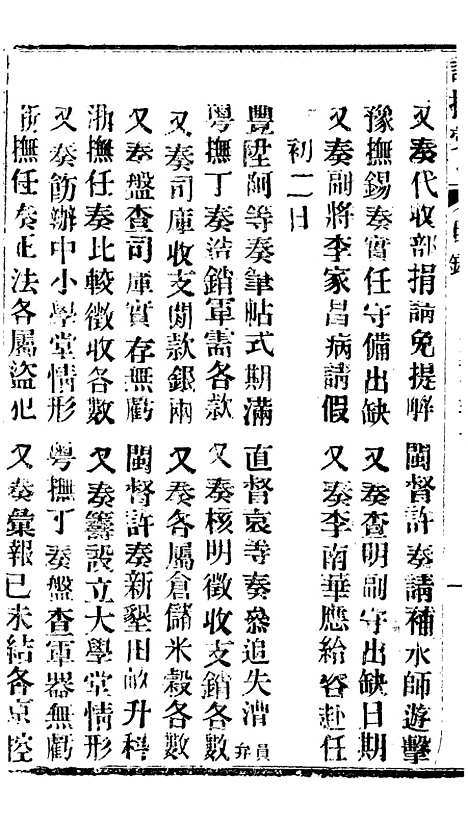 又奏代收部捐請免提解　閩督許奏請補水師遊擊
豫撫錫奏實任守備出缺　又奏查明副守出缺日期
又奏副將李家昌病請假　又奏李南華應給咨赴任
初二日
豐陞阿等奏筆帖式期滿　直督袁等奏參追失漕員弁
粵撫丁奏造銷軍需各款　又奏核明徵收支銷各數
又奏司庫收支閒款銀兩　又奏各屬倉儲米穀各數
又奏盤查司庫實存無虧　閩督許奏新墾田畝升科
浙撫任奏比較徵收各數　又奏籌設立大學堂情形
又奏飭辦中小學堂情形　粵撫丁奏盤查軍器無虧
浙撫任奏正法各屬盜犯　又奏彙報已未結各京控